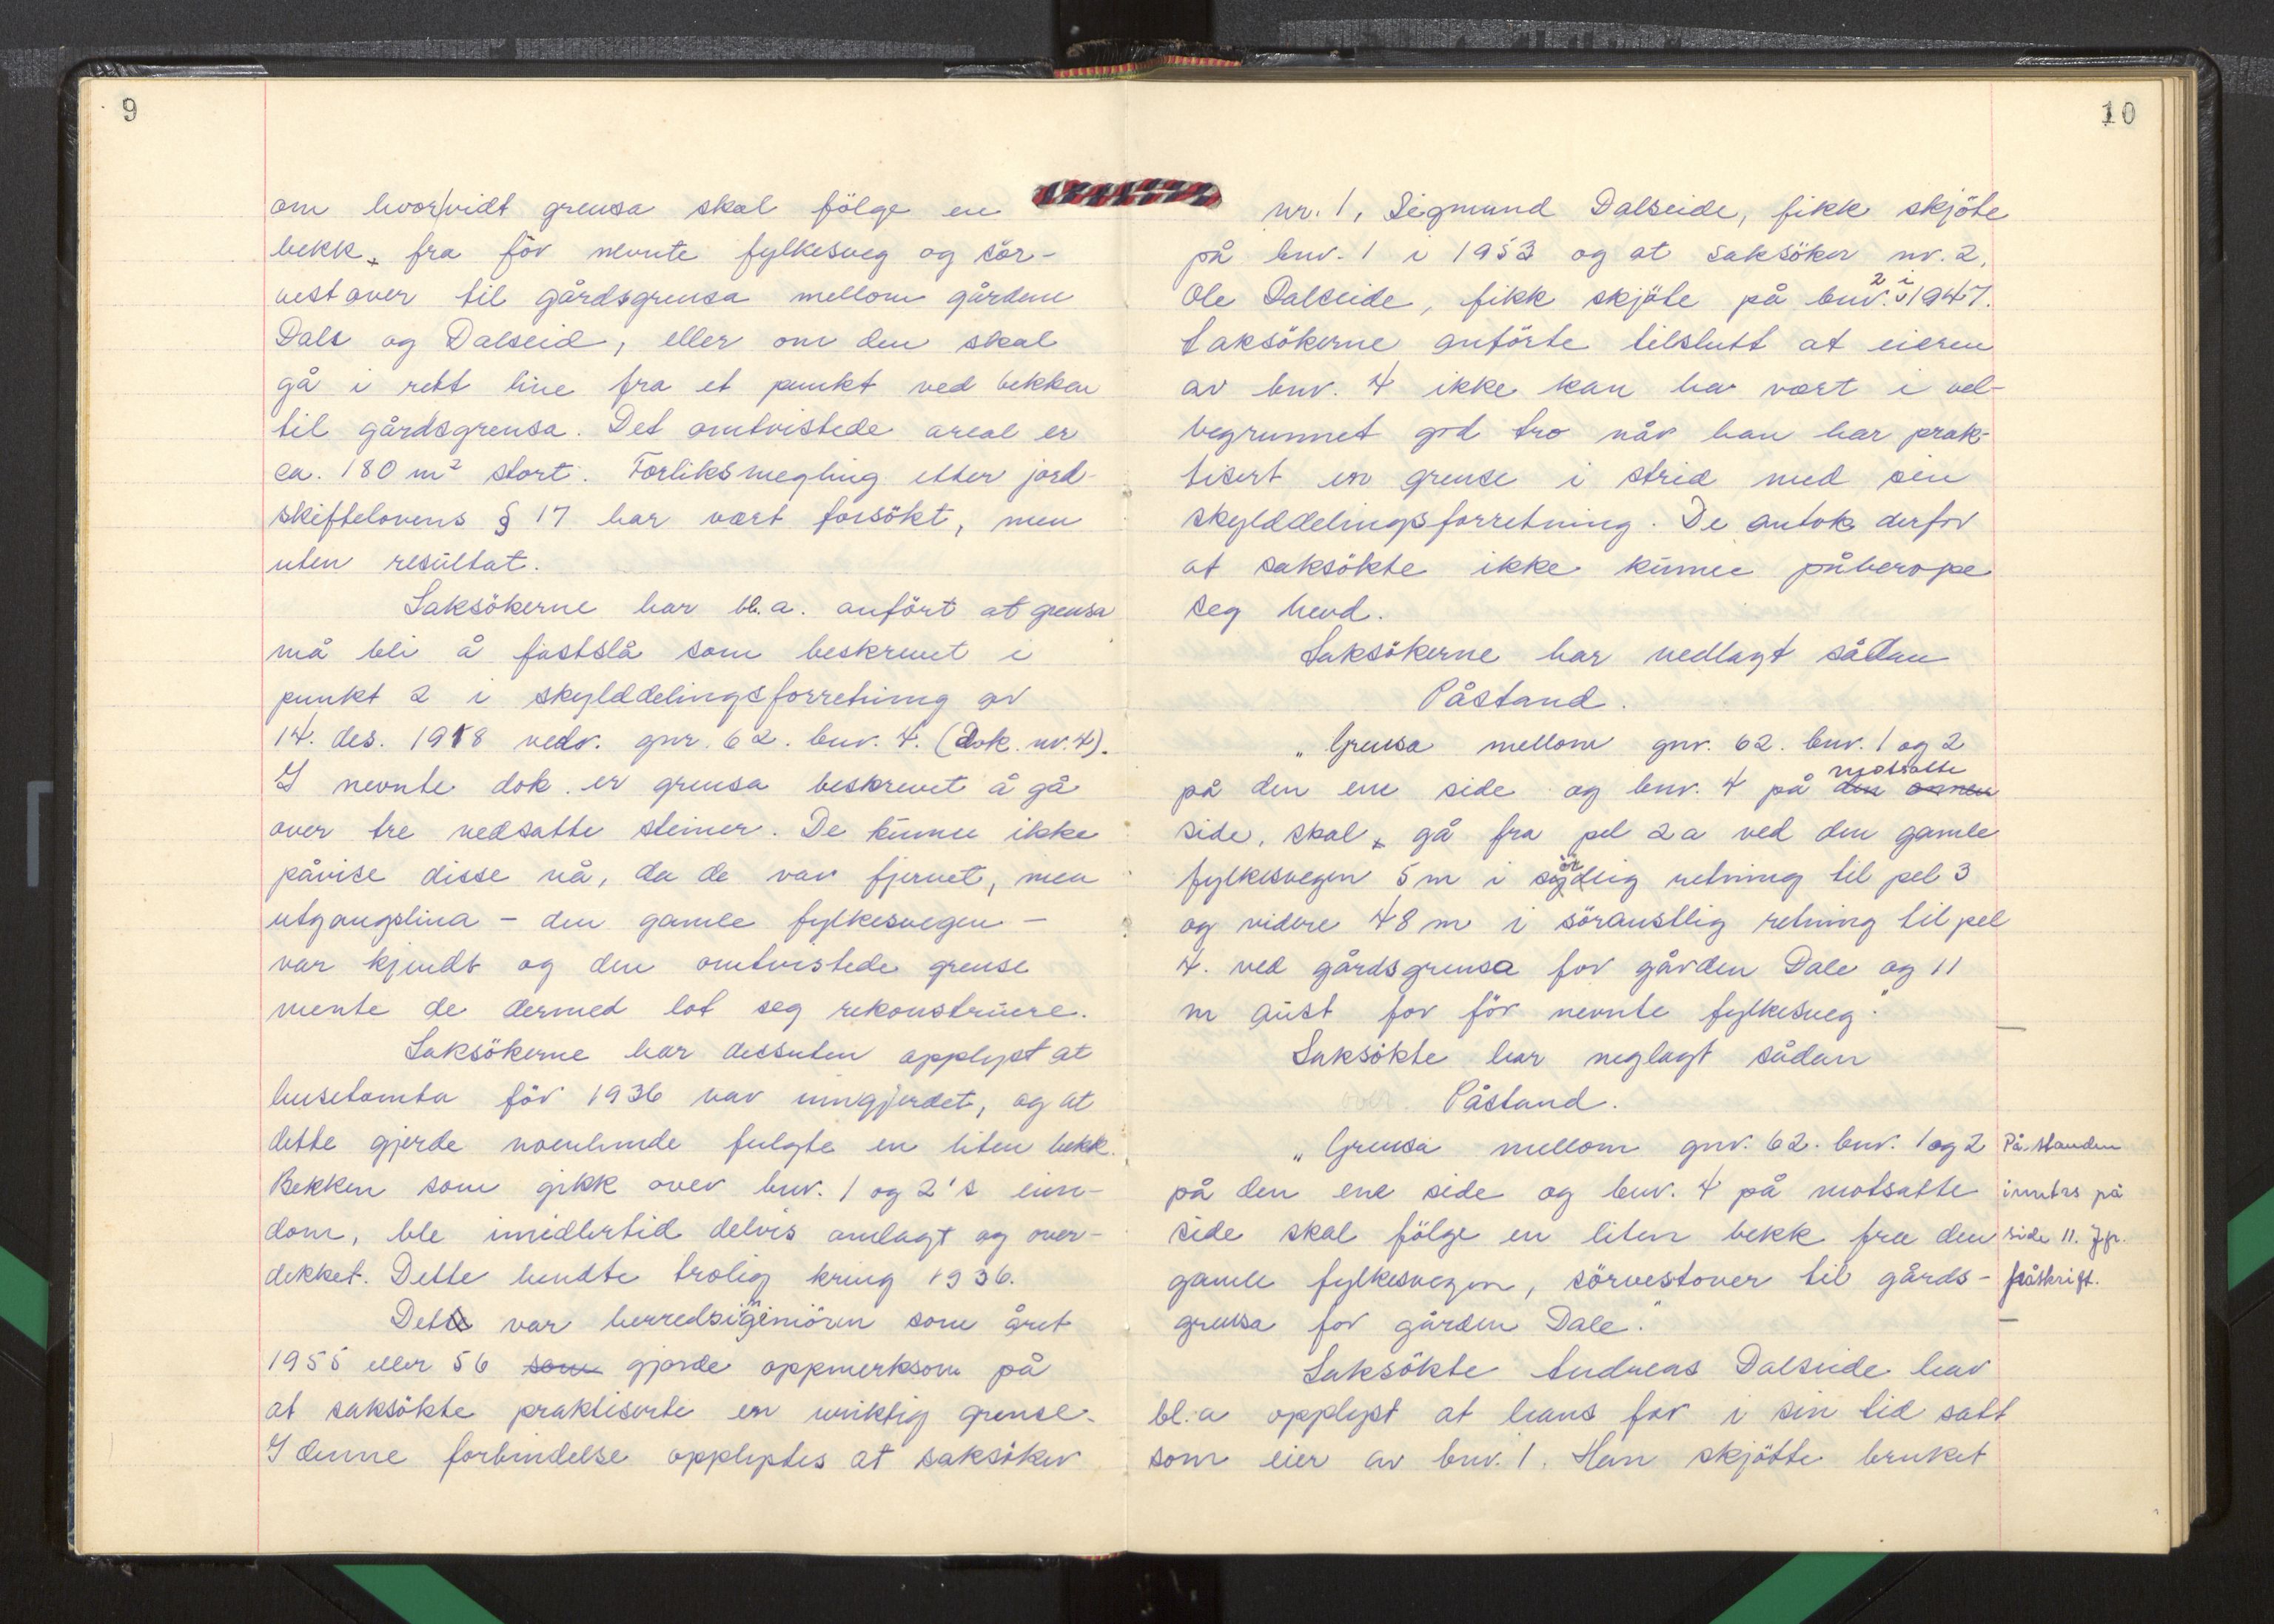 9
om hvorvidt grensa skal fölge en
bekk, fra för nevnte fylkesveg og sör-
vestover til gårdsgrensa mellom gårdene
Dals og Dalseid, eller om den skal
gå i rett line fra et punkt ved bekken
til gårdsgrensa. Det omtvistede areal er
ca. 180 m² stort. Forliksmegling etter jord-
skiftelovens § 17 har vært forsökt, men
uten resultat.
Saksökerne har bl.a. anfört at grensa
må bli å fastslå som beskrevet i
punkt 2 i skylddelingsforretning av
14. des. 1918 vedr. gnr. 62. bnr. 4. (Dok. nr. 4).
I nevnte dok. er grensa beskrevet å gå
over tre nedsatte steiner. De kunne ikke
påvise disse nå, da de var fjernet, men
utgangslina - den gamle fylkesvegen -
var kjendt og den omtvistede grense
mente de dermed lot seg rekonstruere.
Saksökerne har dessuten opplyst at
husetomta för 1936 var inngjerdet, og at
dette gjerde noenlunde fulgte en liten bekk.
Bekken som gikk over bnr. 1 og 2's eien-
dom, ble imidlertid delvis omlagt og over-
dekket. Dette hendte trolig kring 1936.
Det var herredsingeniören som året
1955 eller 56 som gjorde oppmerksom på
at saksökte praktiserte en uriktig grense.
I denne forbindelse opplystes at saksöker
10
nr. 1, Sigmund Dalseide, fikk skjöte
på bnr. 1 i 1953 og at saksöker nr. 2,
Ole Dalseide, fikk skjöte på bnr. 2 i 1947.
Saksökerne anförte tilslutt at eieren
av bnr. 4 ikke kan ha vært i vel-
begrunnet god tro når han har prak-
tisert en grense i strid med sin
skylddelingsforretning. De antok derfor
at saksökte ikke kunne påberope
seg hevd.
Saksökerne har nedlagt sådan
Påstand.
"Grensa mellom gnr. 62. bnr. 1 og 2
på den ene side og bnr. 4 på den annen motsatte
side, skal, gå fra pel 2a ved den gamle
fylkesvegen 5 m i sörlig retning til pel 3
og videre 48 m i söraustlig retning til pel
4. ved gårdsgrensa for gården Dale og 11
m aust for för nevnte fylkesveg."
Saksökte har neglagt sådan
Påstand.
"Grensa mellom gnr. 62. bnr. 1 og 2
på den ene side og bnr. 4 på motsatte
side skal fölge en liten bekk fra den
gamle fylkesvegen, sörvestover til gårds-
grensa for gården Dale."
Saksökte Andreas Dalseide har
bl.a opplyst at hans far i sin tid satt
som eier av bnr. 1. Han skjötte bruket
Påstanden
inntas på
side 11. Jfr.
påskrift.